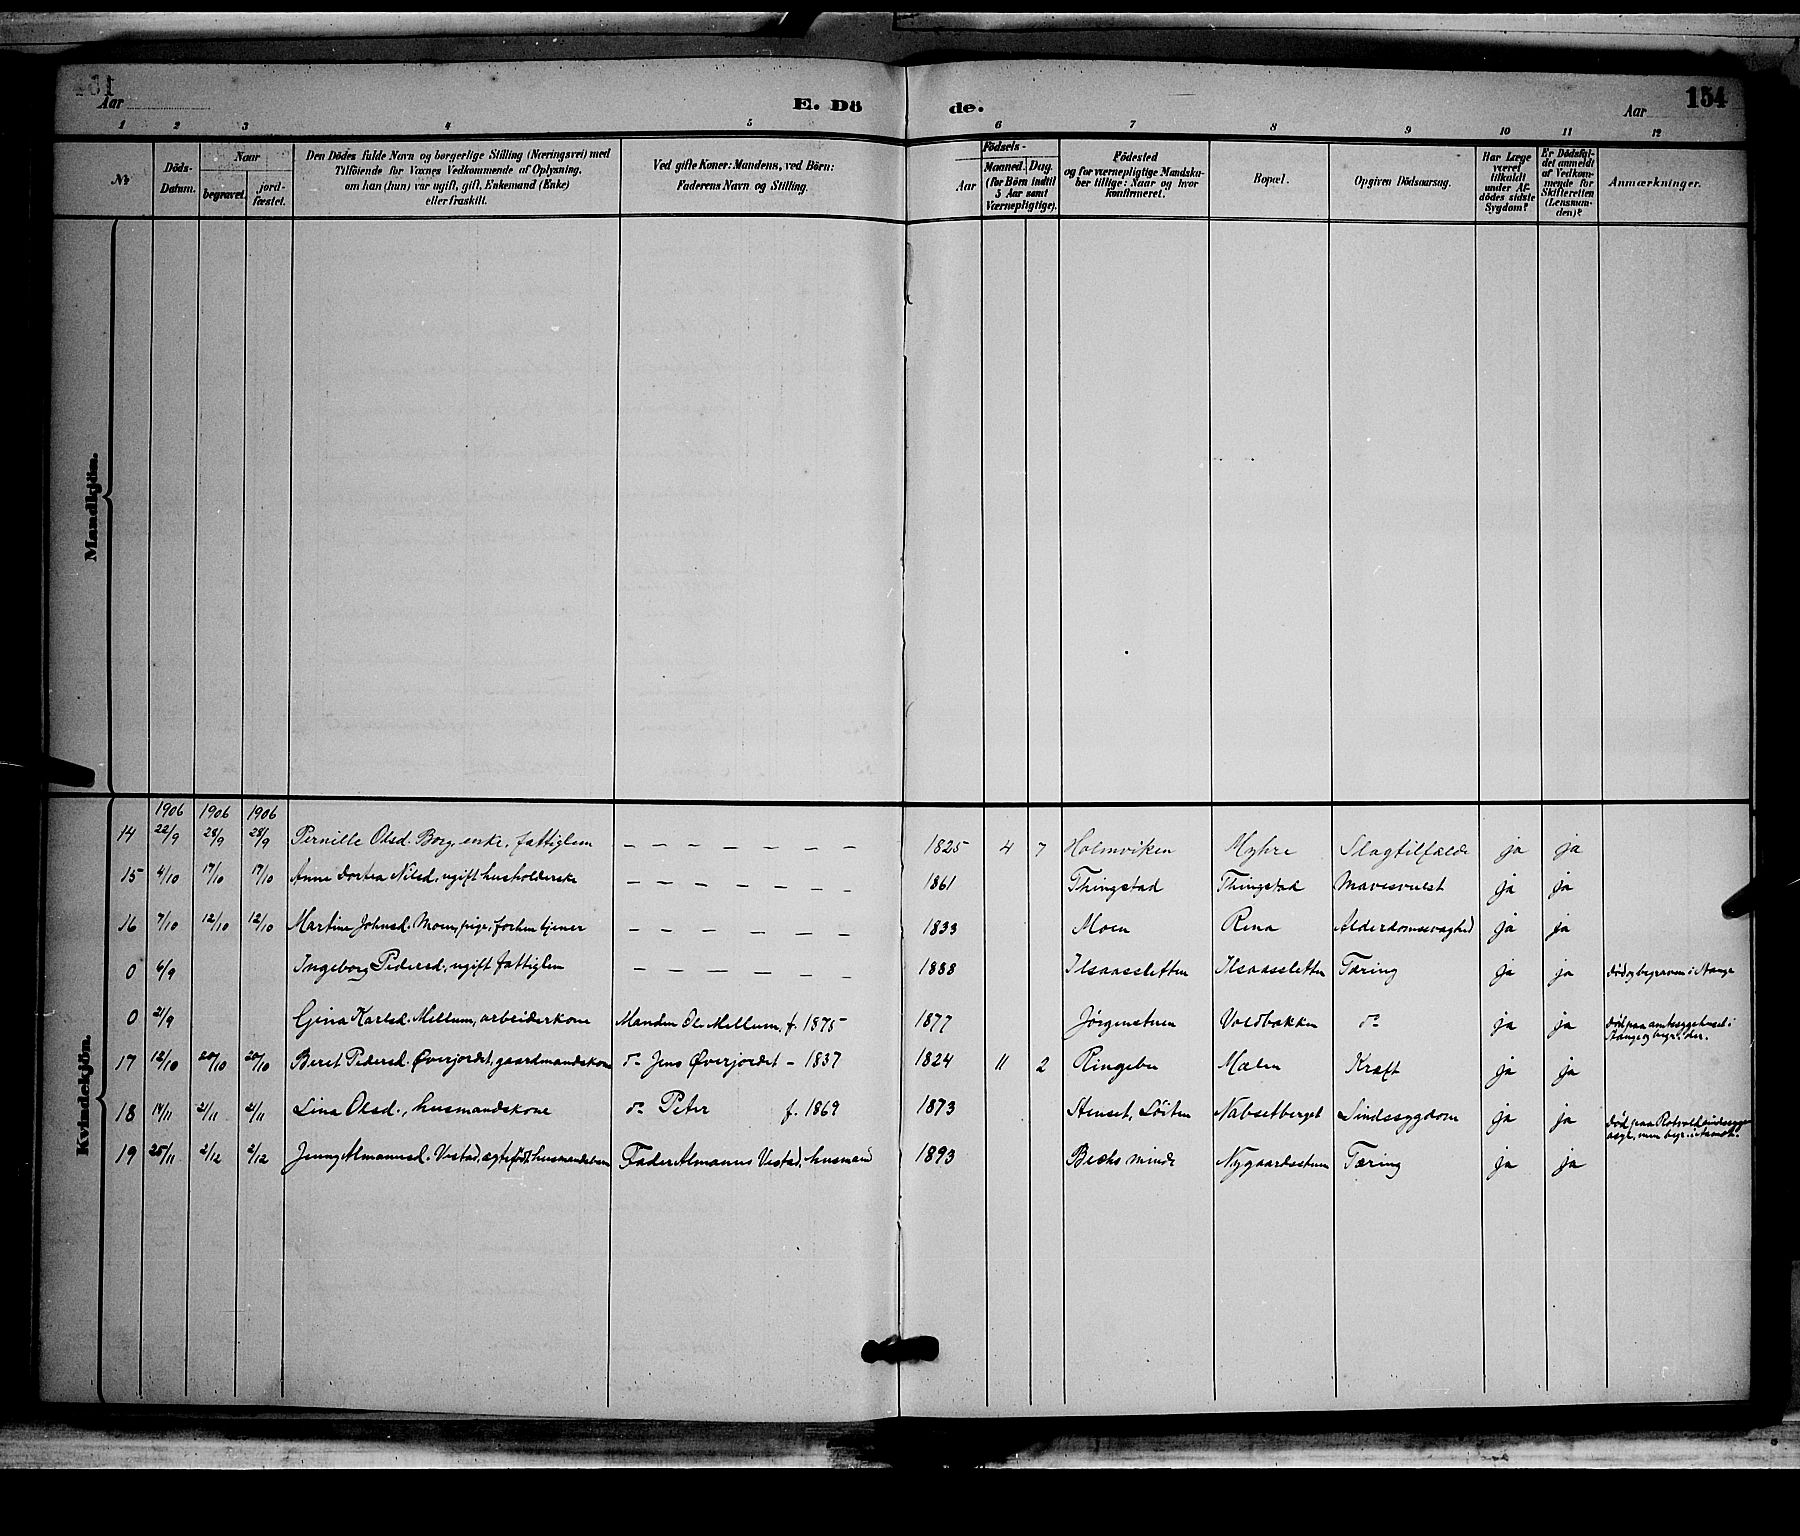 161
Aar
E. Dö de.
Aar
154
1 2 3 4 5 6 7 8 9 10 11 12
Nr
Döds-Datum.
Naar
begravet.
jord-fæstet.
Den Dödes fulde Navn og borgerlige Stilling (Næringsvei) med
Tilföiende for Voxnes Vedkommende af Oplysning,
om han (hun) var ugift, gift, Enkemand (Enke)
eller fraskilt.
Ved gifte Koner: Mandens, ved Börn:
Faderens Navn og Stilling.
Födsels-
Aar
Maaned. Dag.
(for Börn indtil
5 Aar samt
Værnepligtige).
Födested
og for værnepligtige Mandska-
ber tillige: Naar og hvor
konfirmeret.
Bopæl.
Opgiven Dödsaarsag.
Har Læge
været
tilkaldt
under Af-
dödes sidste
Sygdom?
Er Dödsfal-
det anmeldt
af Vedkom-
mende for
Skifteretten
(Lensman-
den)?
Anmærkninger.
Mandkjön.
Kvindekjön.
1906 1906 1906
14 22/9 28/9 28/9 Pernille Olsd. Borg, enke, fattiglem — — — — — — — 1825 4 7 Holmviken Myhre Slagtilfælde ja ja
15 4/10 17/10 17/10 Anne Dortea Nilsd., ugift husholderske — — — — — — — 1861 Thingstad Thingstad Mavesvulst ja ja
16 7/10 12/10 12/10 Martine Johnsd. Moen, pige, forhen tjener — — — — — — 1833 Moen Rena Alderdomssvaghed ja ja
0 6/9 Ingeborg Pedersd., ugift fattiglem — — — — — — 1888 Ilsaassletten Ilsaassletten Tæring ja ja død og begraven i Stange
0 21/9 Gina Karlsd. Mellum, arbeiderkone Manden Ole Mellum, f. 1875 1877 Jørgenstuen Voldbakken do ja ja død paa amtssygehuset i
Stange og begr. der.
17 12/10 20/10 20/10 Beret Pedersd. Øverjordet, gaardmandskone do Jens Øverjordet – 1837 1824 11 2 Ringebu Mælen Kræft ja ja
18 14/11 21/11 21/11 Lina Olsd., husmandskone do Peter f. 1869 1873 Stenset, Løiten Nabsetberget Sindssygdom ja ja død paa Rotvold sindssyge
asyl, men begr.
19 25/11 2/12 2/12 Jenny Almannsd. Vestad, ægtefødt husmandsbarn Fader Almanns Vestad, husmand 1893 Bechs minde Nygaardsstuen Tæring ja ja